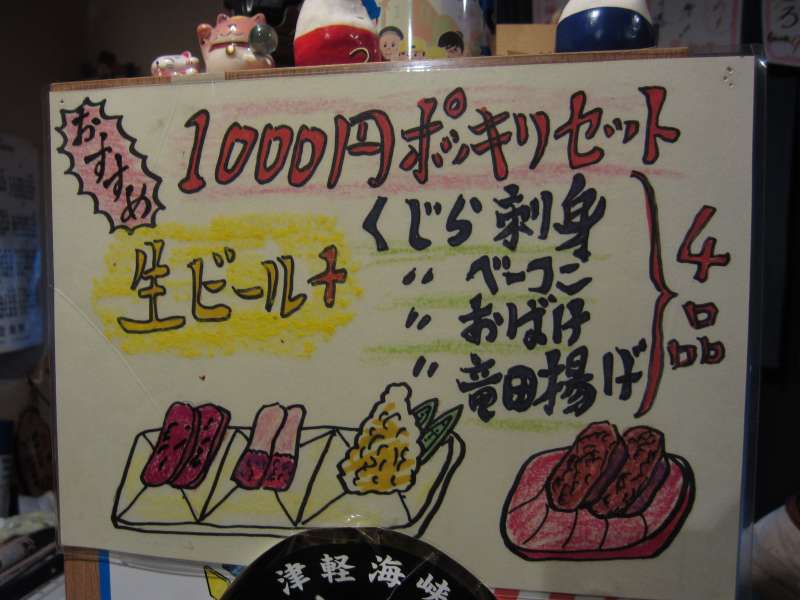 おすすめ
1000円ポッキリセット
生ビール+
くじら刺身
〃 ベーコン
〃 おばけ
〃 竜田揚げ
4品
津軽海峡